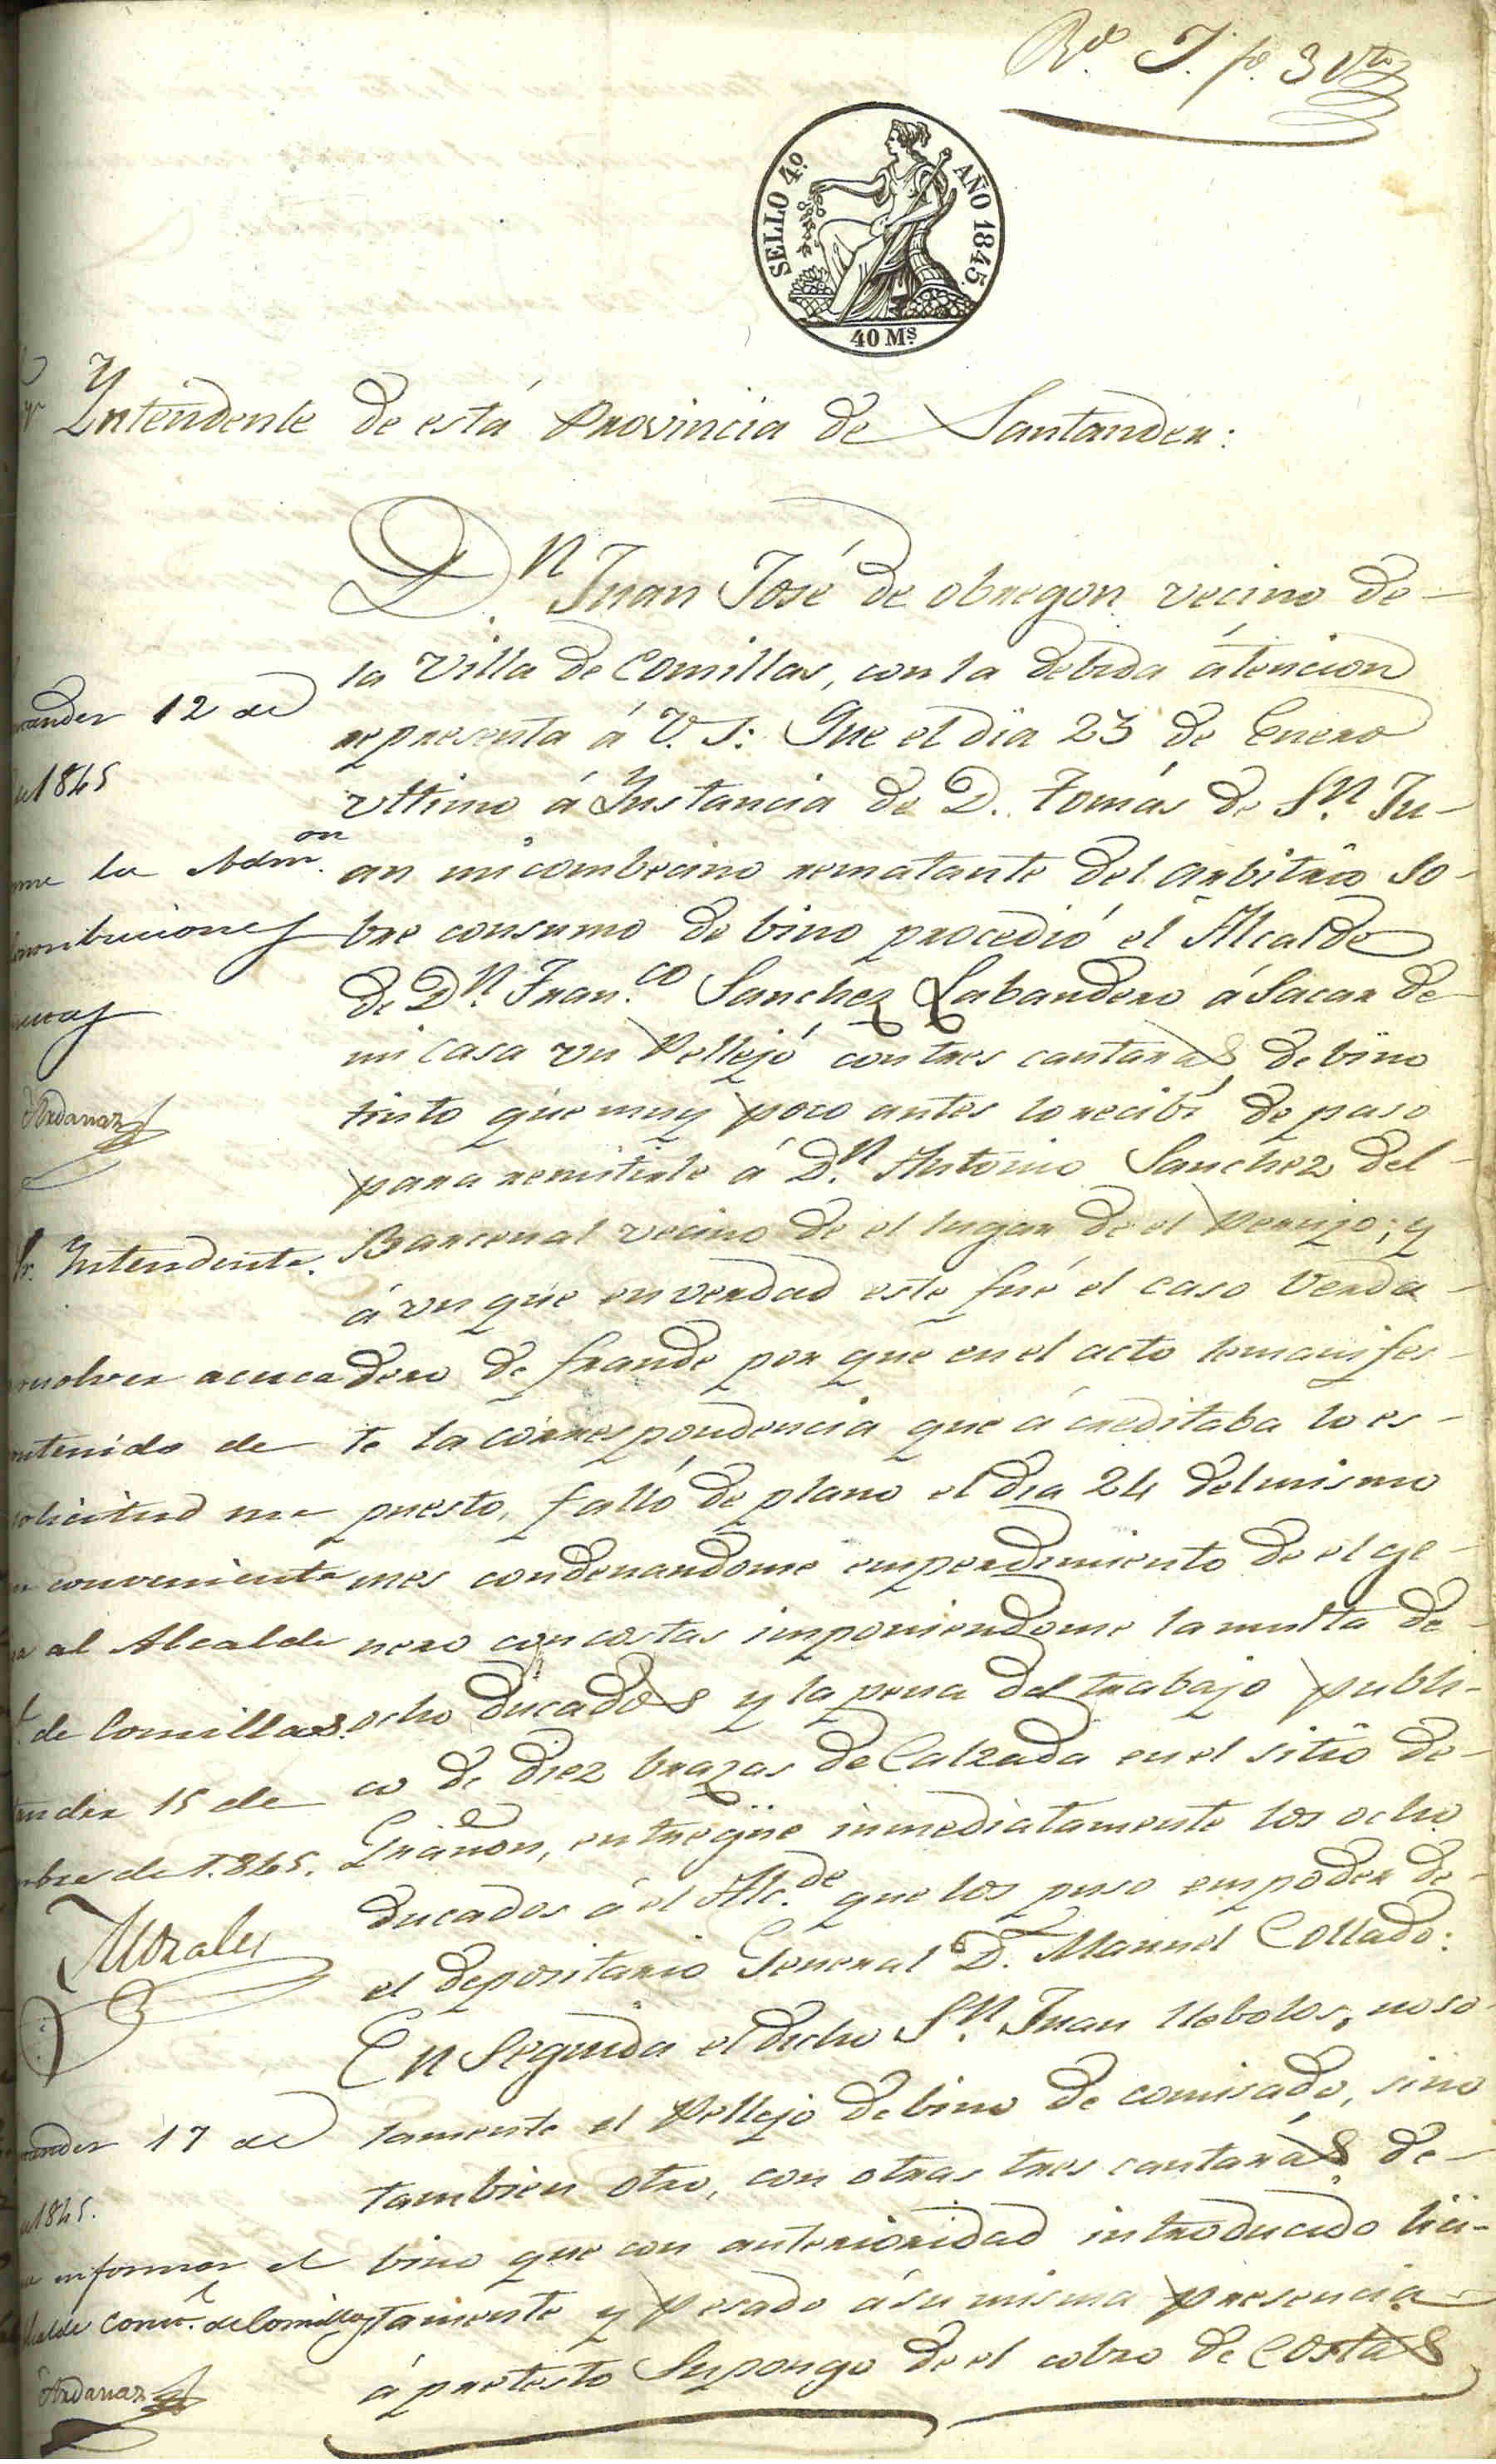 Rdo. J. fo. 3 Vto
SELLO 4º. AÑO 1845.
40 Ms.
Intendente de está Provincia de Santander:
Dn. Juan José de obregon vecino de
la Villa de Comillas, con la debida átencion
representa á V. S: Que el dia 23 de Enero
ultimo á Instancia de D. Tomás de Sn. Ju-
an mi combecino rematante del arbitrio so-
bre consumo de bino procedió el Alcalde
de Dn. Fran.co Sanchez Labandero á Sacar de
mi casa un Pellejo con tres cantaras de bino
tinto que muy poco antes lo recibi de paso
para remitirle á Dn. Antonio Sanchez del
Barcenal vecino de el lugar de el Perujo; y
á un que en verdad este fué el caso Verda-
dero de fraude por que en el acto le manifes-
te la correspondencia que á creditaba lo es-
puesto, falló de plano el dia 24 del mismo
mes condenandome emperdimiento de el ge-
nero con costas imponiendome la multa de
ocho ducados y la pena del trabajo publi-
co de diez brazas de Calzada en el sitio de
Grañon, entregüe inmediatamente los ocho
ducados á el Alc.de que los puso empoder de
el depositario General D. Manuel Collado:
En Seguida el dicho Sn. Juan llebolos, no so-
lamente el Pellejo de bino de comisado, sino
tambien otro, con otras tres cantarás de
bino que con anterioridad introducido lici-
tamente y Pesado á su misma presencia
á pretesto Supongo de el cobro de Costas
12 de
1845
la Admon.
Ardanaz
Sr. Intendente.
acerca
contenido de
solicitud me
conveniente
al Alcalde
de Comillas.
15 de
de 1.845.
Morales
17 de
1845.
informar el
Alcalde Conl. de Comillas
Ardanaz